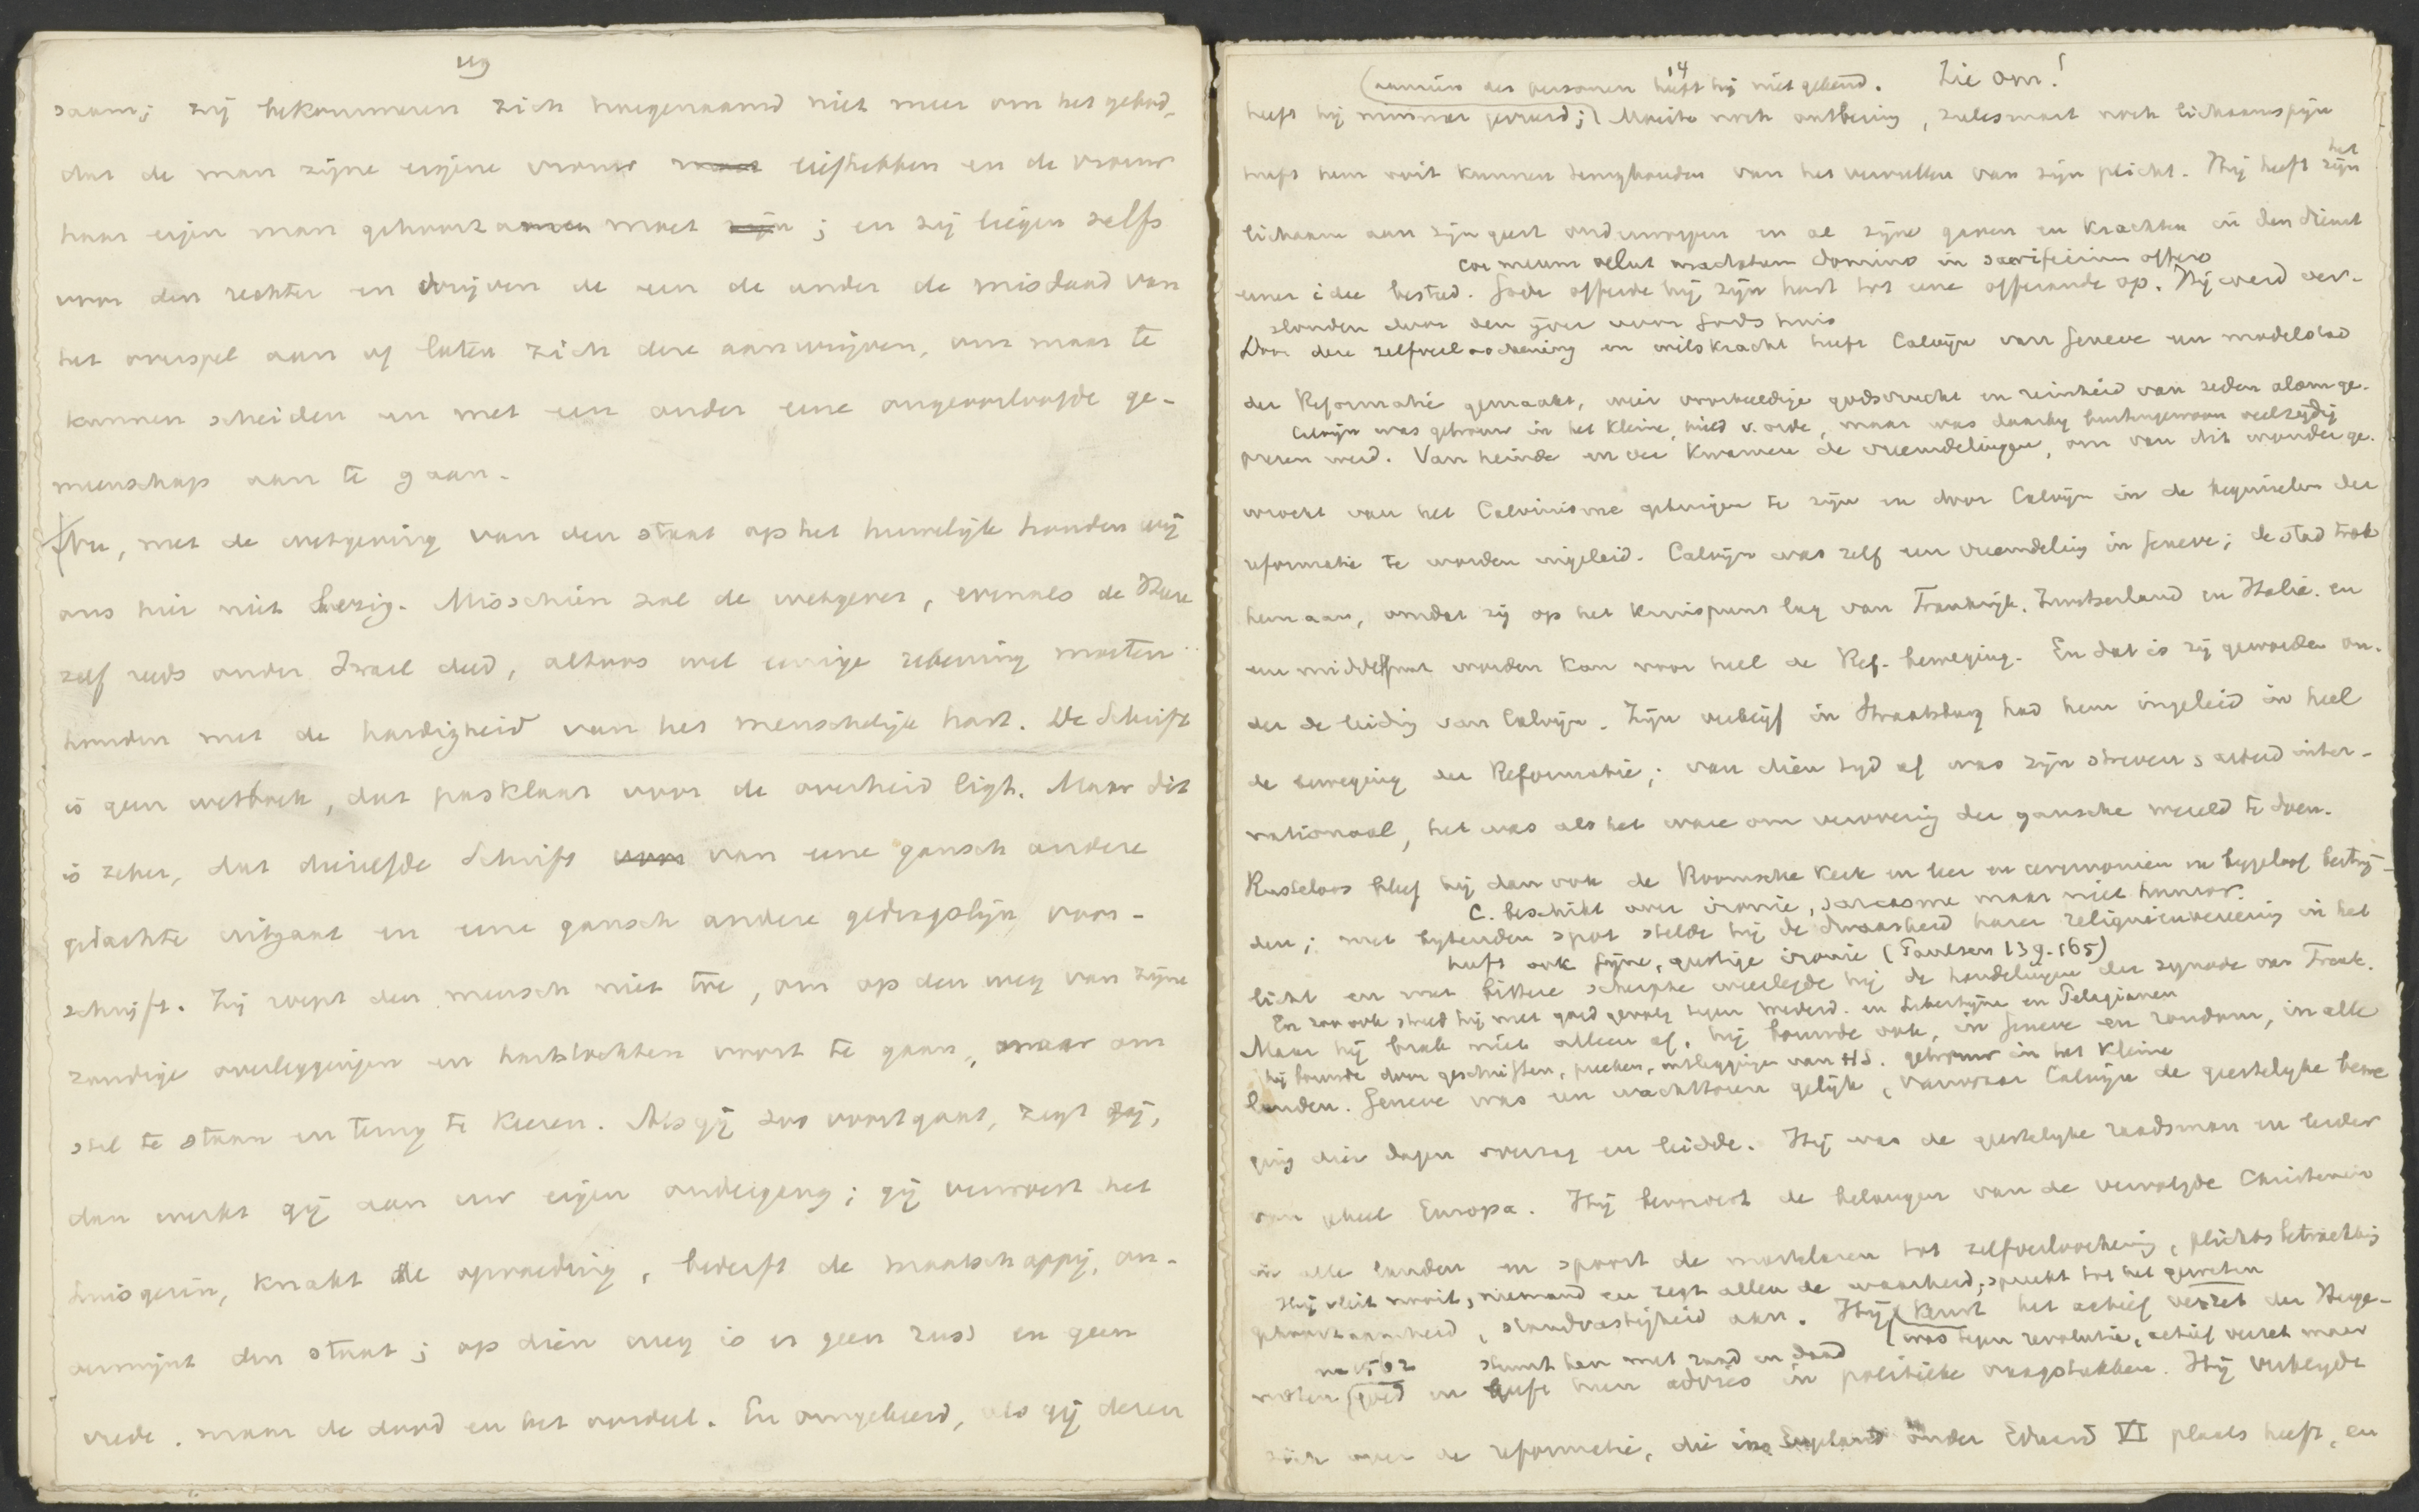 119
saam; zij bekommeren zich hoegenaamd niet meer om het gebod,
dat de man zijne eigene vrouw moet liefhebben en de vrouw
haar eigen man gehoorzamen moet zijn; en zij liegen zelfs
voor den rechter en wrijven de een de ander de misdaad van
het overspel aan of laten zich deze aanwrijven, om maar te
kunnen scheiden en met een ander eene ongeoorloofde ge-
meenschap aan te gaan.
Nu, met de wetgeving van den staat op het huwelijk houden wij
ons hier niet bezig. Misschien zal de wetgever, evenals de Heere
zelf reeds onder Israel deed, althans wel eenige rekening moeten
houden met de hardigheid van het menschelijk hart. De Schrift
is geen wetboek, dat pasklaar voor de overheid ligt. Maar dit
is zeker, dat diezelfde Schrift van eene gansch andere
gedachte uitgaat en eene gansch andere gedragslijn voor-
schrijft. Zij roept den mensch niet toe, om op den weg van zijne
zondige overleggingen en hartstochten voort te gaan, maar om
stil te staan en terug te keeren. Als gij zoo voortgaat, zegt zij,
dan werkt gij aan uw eigen ondergang; gij verwoest het
huisgezin, knakt de opvoeding, bederft de maatschappij, on-
dermijnt den staat; op dien weg is er geen rust en geen
vrede, maar de dood en het oordeel. En omgekeerd, als gij dezen
14
(aanzien des persoons heeft hij niet gekend. Zie om!
heeft hij nimmer gevreesd; Moeite noch ontbering, zielesmart noch lichaamspijn
heeft hem ooit kunnen terughouden van het vervullen van zijn plicht. Hij heeft zijn het
lichaam aan zijn geest onderworpen en al zijne gaven en krachten in den dienst
cor meum velut mactatum domino in sacrificium offero
eener idee besteed. Gode offerde hij zijn hart tot eene offerande op. Hij werd ver-
slonden door den ijver voor Gods huis
Door deze zelfverloochening en wilskracht heeft Calvijn van Geneve een modelstad
der Reformatie gemaakt, wier voorbeeldige godsvrucht en reinheid van zeden alom ge-
Calvijn was getrouw in het kleine, hield v. orde, maar was daarbij buitengewoon veelzijdig
prezen werd. Van heinde en ver kwamen de vreemdelingen, om van dit wonder ge-
wrocht van het Calvinisme getuigen te zijn en door Calvijn in de beginselen der
reformatie te worden ingeleid. Calvijn was zelf een vreemdeling in Geneve; de stad trok
hem aan, omdat zij op het kruispunt lag van Frankrijk, Zwitserland en Italië. en
een middelpunt worden kon voor heel de Ref. beweging. En dat is zij geworden on-
der de leiding van Calvijn. Zijn verblijf in Straatsburg had hem ingeleid in heel
de beweging der Reformatie; van dien tijd af was zijn streven & arbeid inter-
nationaal, het was als het ware om verovering der gansche wereld te doen.
Rusteloos bleef hij dan ook de Roomsche kerk in leer en ceremonien en bygeloof bestrij-
C. beschikt over ironie, sarcasme maar niet humor.
den; met bytenden spot stelde hij de dwaasheid harer reliquieenvereering in het
heeft ook fijne, geestige ironie (Paulsen 139. 165)
licht en met bittere scherpte weerlegde hij de handelingen der synode van Trente.
En zoo ook streed hij met goed gevolg tegen Wederd. en Libertijnen en Pelagianen
Maar hij brak niet alleen af, hij bouwde ook, in Geneve en rondom, in alle
hij bouwde door geschriften, preeken, uitleggingen van HS. getrouw in het kleine
landen. Geneve was een wachttoren gelijk, vanwaar Calvijn de geestelijke bewe
ging dier dagen overzag en leidde. Hij was de geestelijke raadsman en leider
van geheel Europa. Hij bevordert de belangen van de vervolgde Christenen
in alle landen en spoort de martelaren tot zelfverloochening, plichtsbetrachting
Hij vleit nooit, niemand en zegt allen de waarheid; spreekt tot het geweten
gehoorzaamheid, standvastigheid aan. Hij keurt het actief verzet der Huge-
(was tegen revolutie, actief verzet maar
na 1562 steunt hen met raad en daad
noten (goed en geeft hun advies in politieke vraagstukken. Hij verblijdt
zich over de reformatie, die in Engeland onder Eduard VI plaats heeft, en